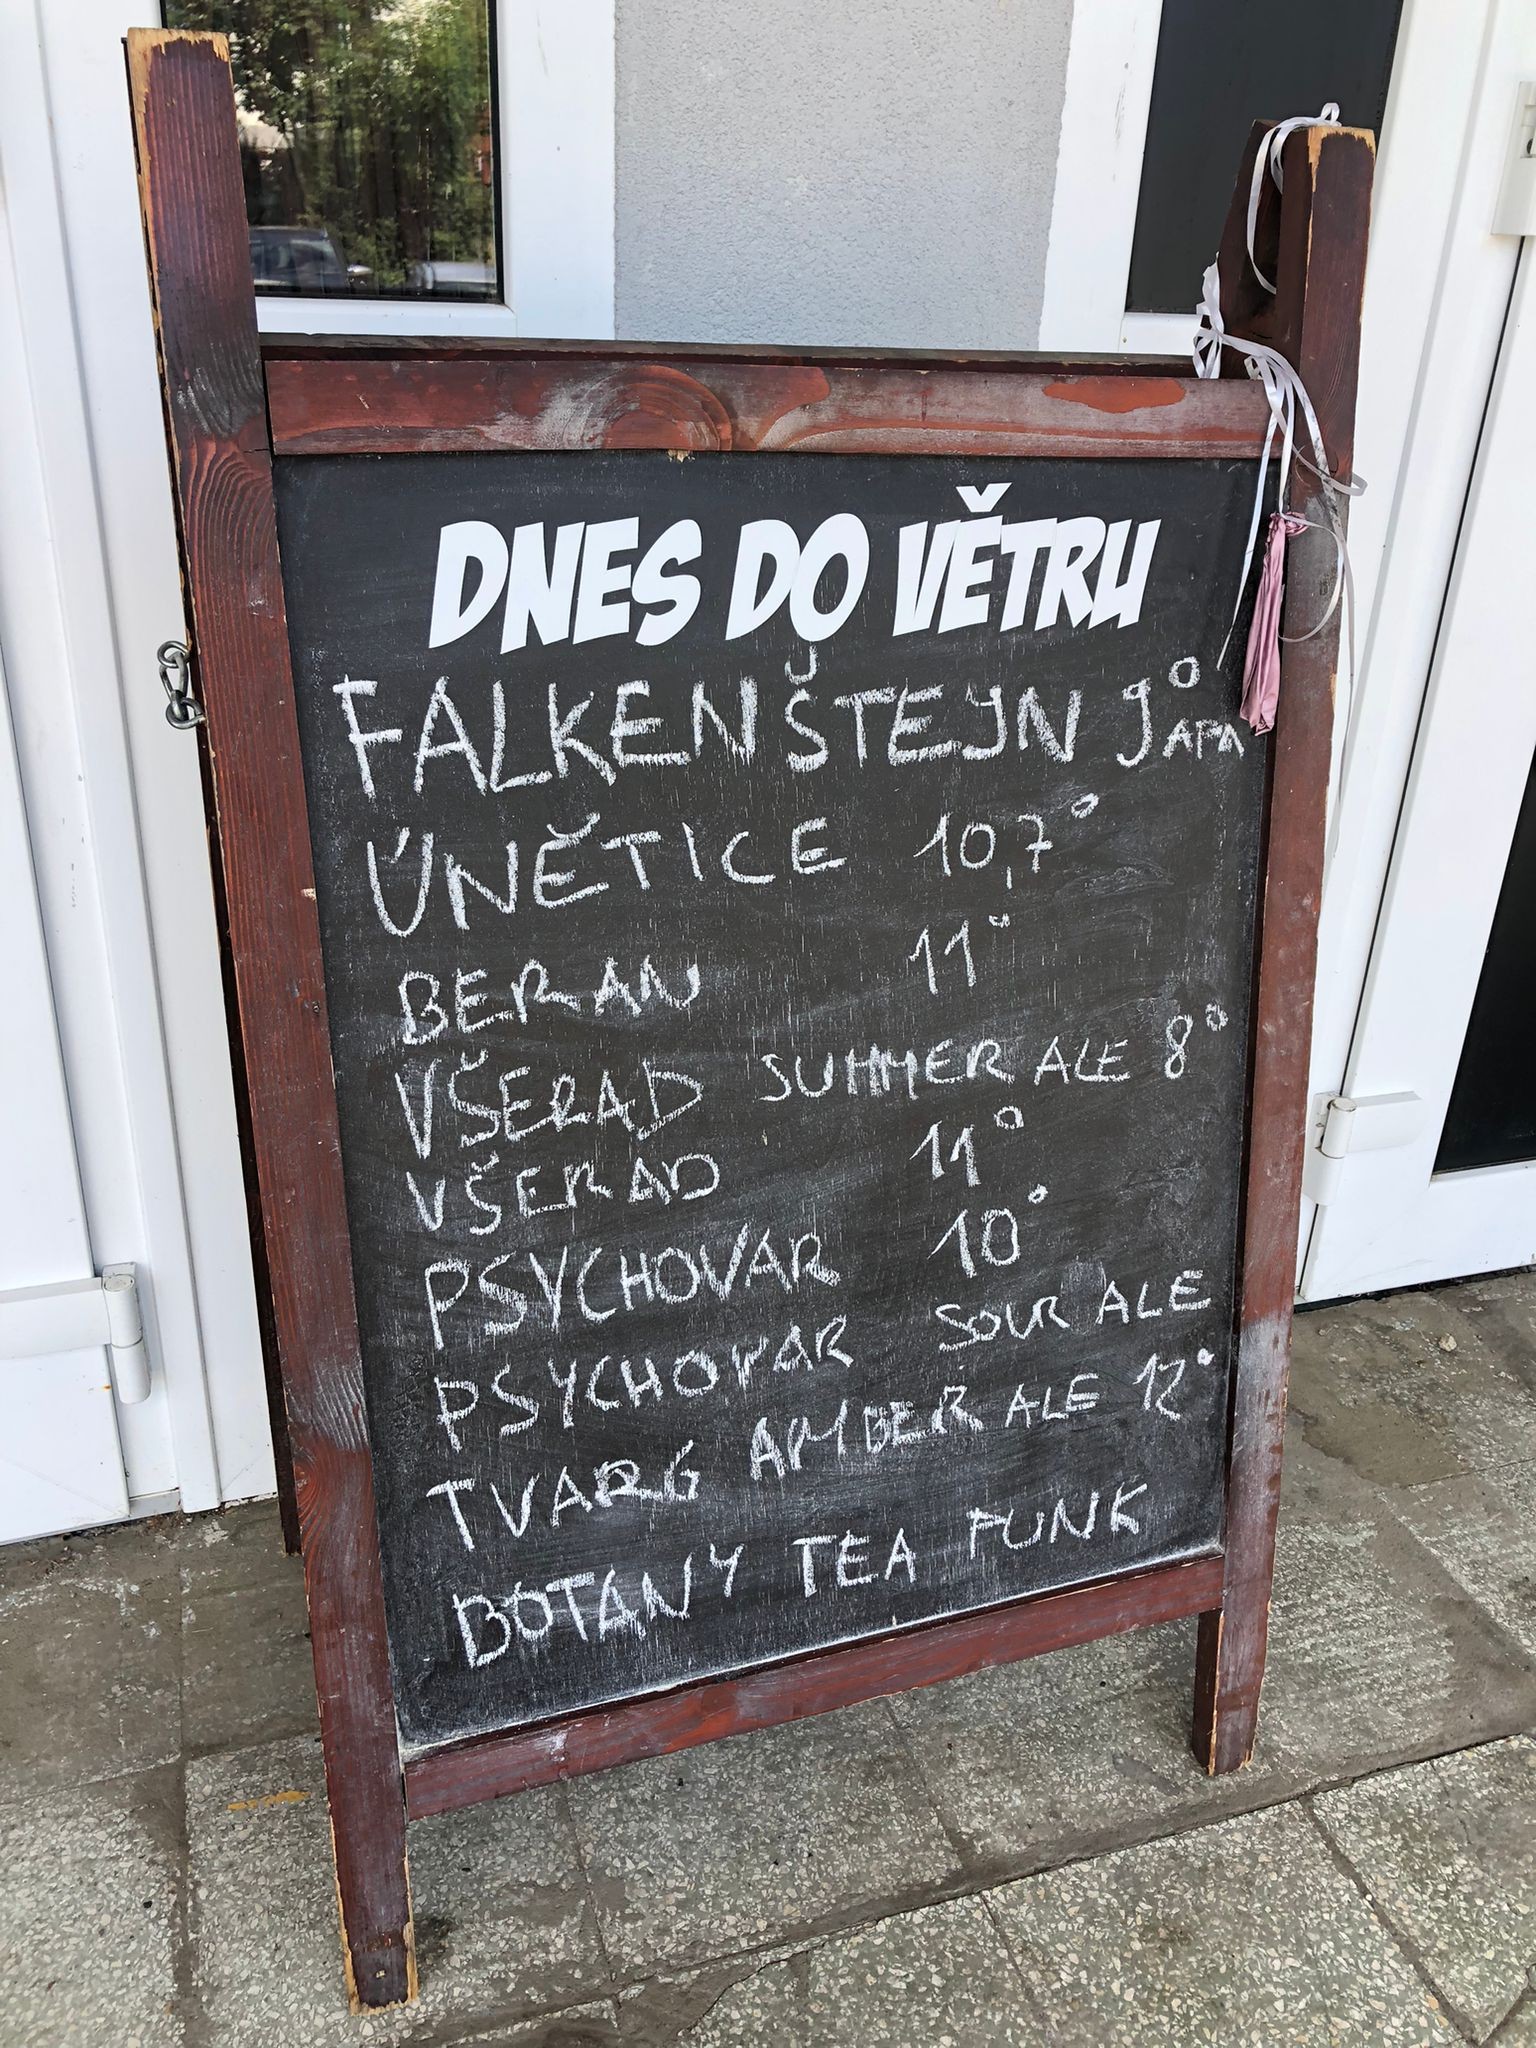 DNES DO VĚTRU
FALKENŠTEJN 9° APA
ÚNĚTICE 10,7°
BERAN 11°
VŠERAD SUMMER ALE 8°
VŠERAD 11°
PSYCHOVAR 10°
PSYCHOVAR SOUR ALE
TVARG AMBER ALE 12°
BOTANY TEA PUNK